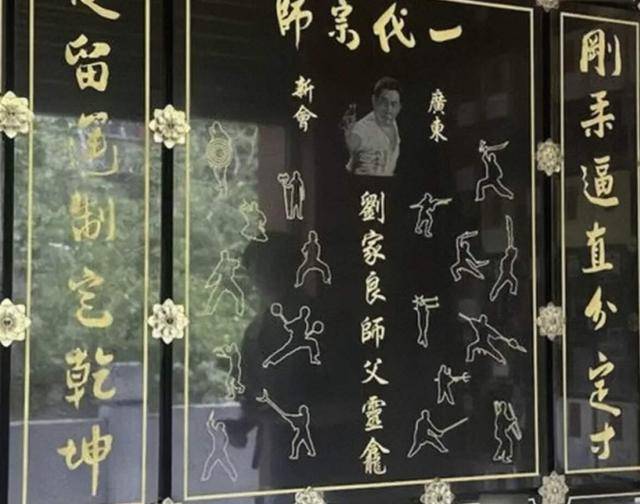 一代宗師
剛柔逼直分定寸
廣東
新會
劉家良師父靈龕
留運制定乾坤